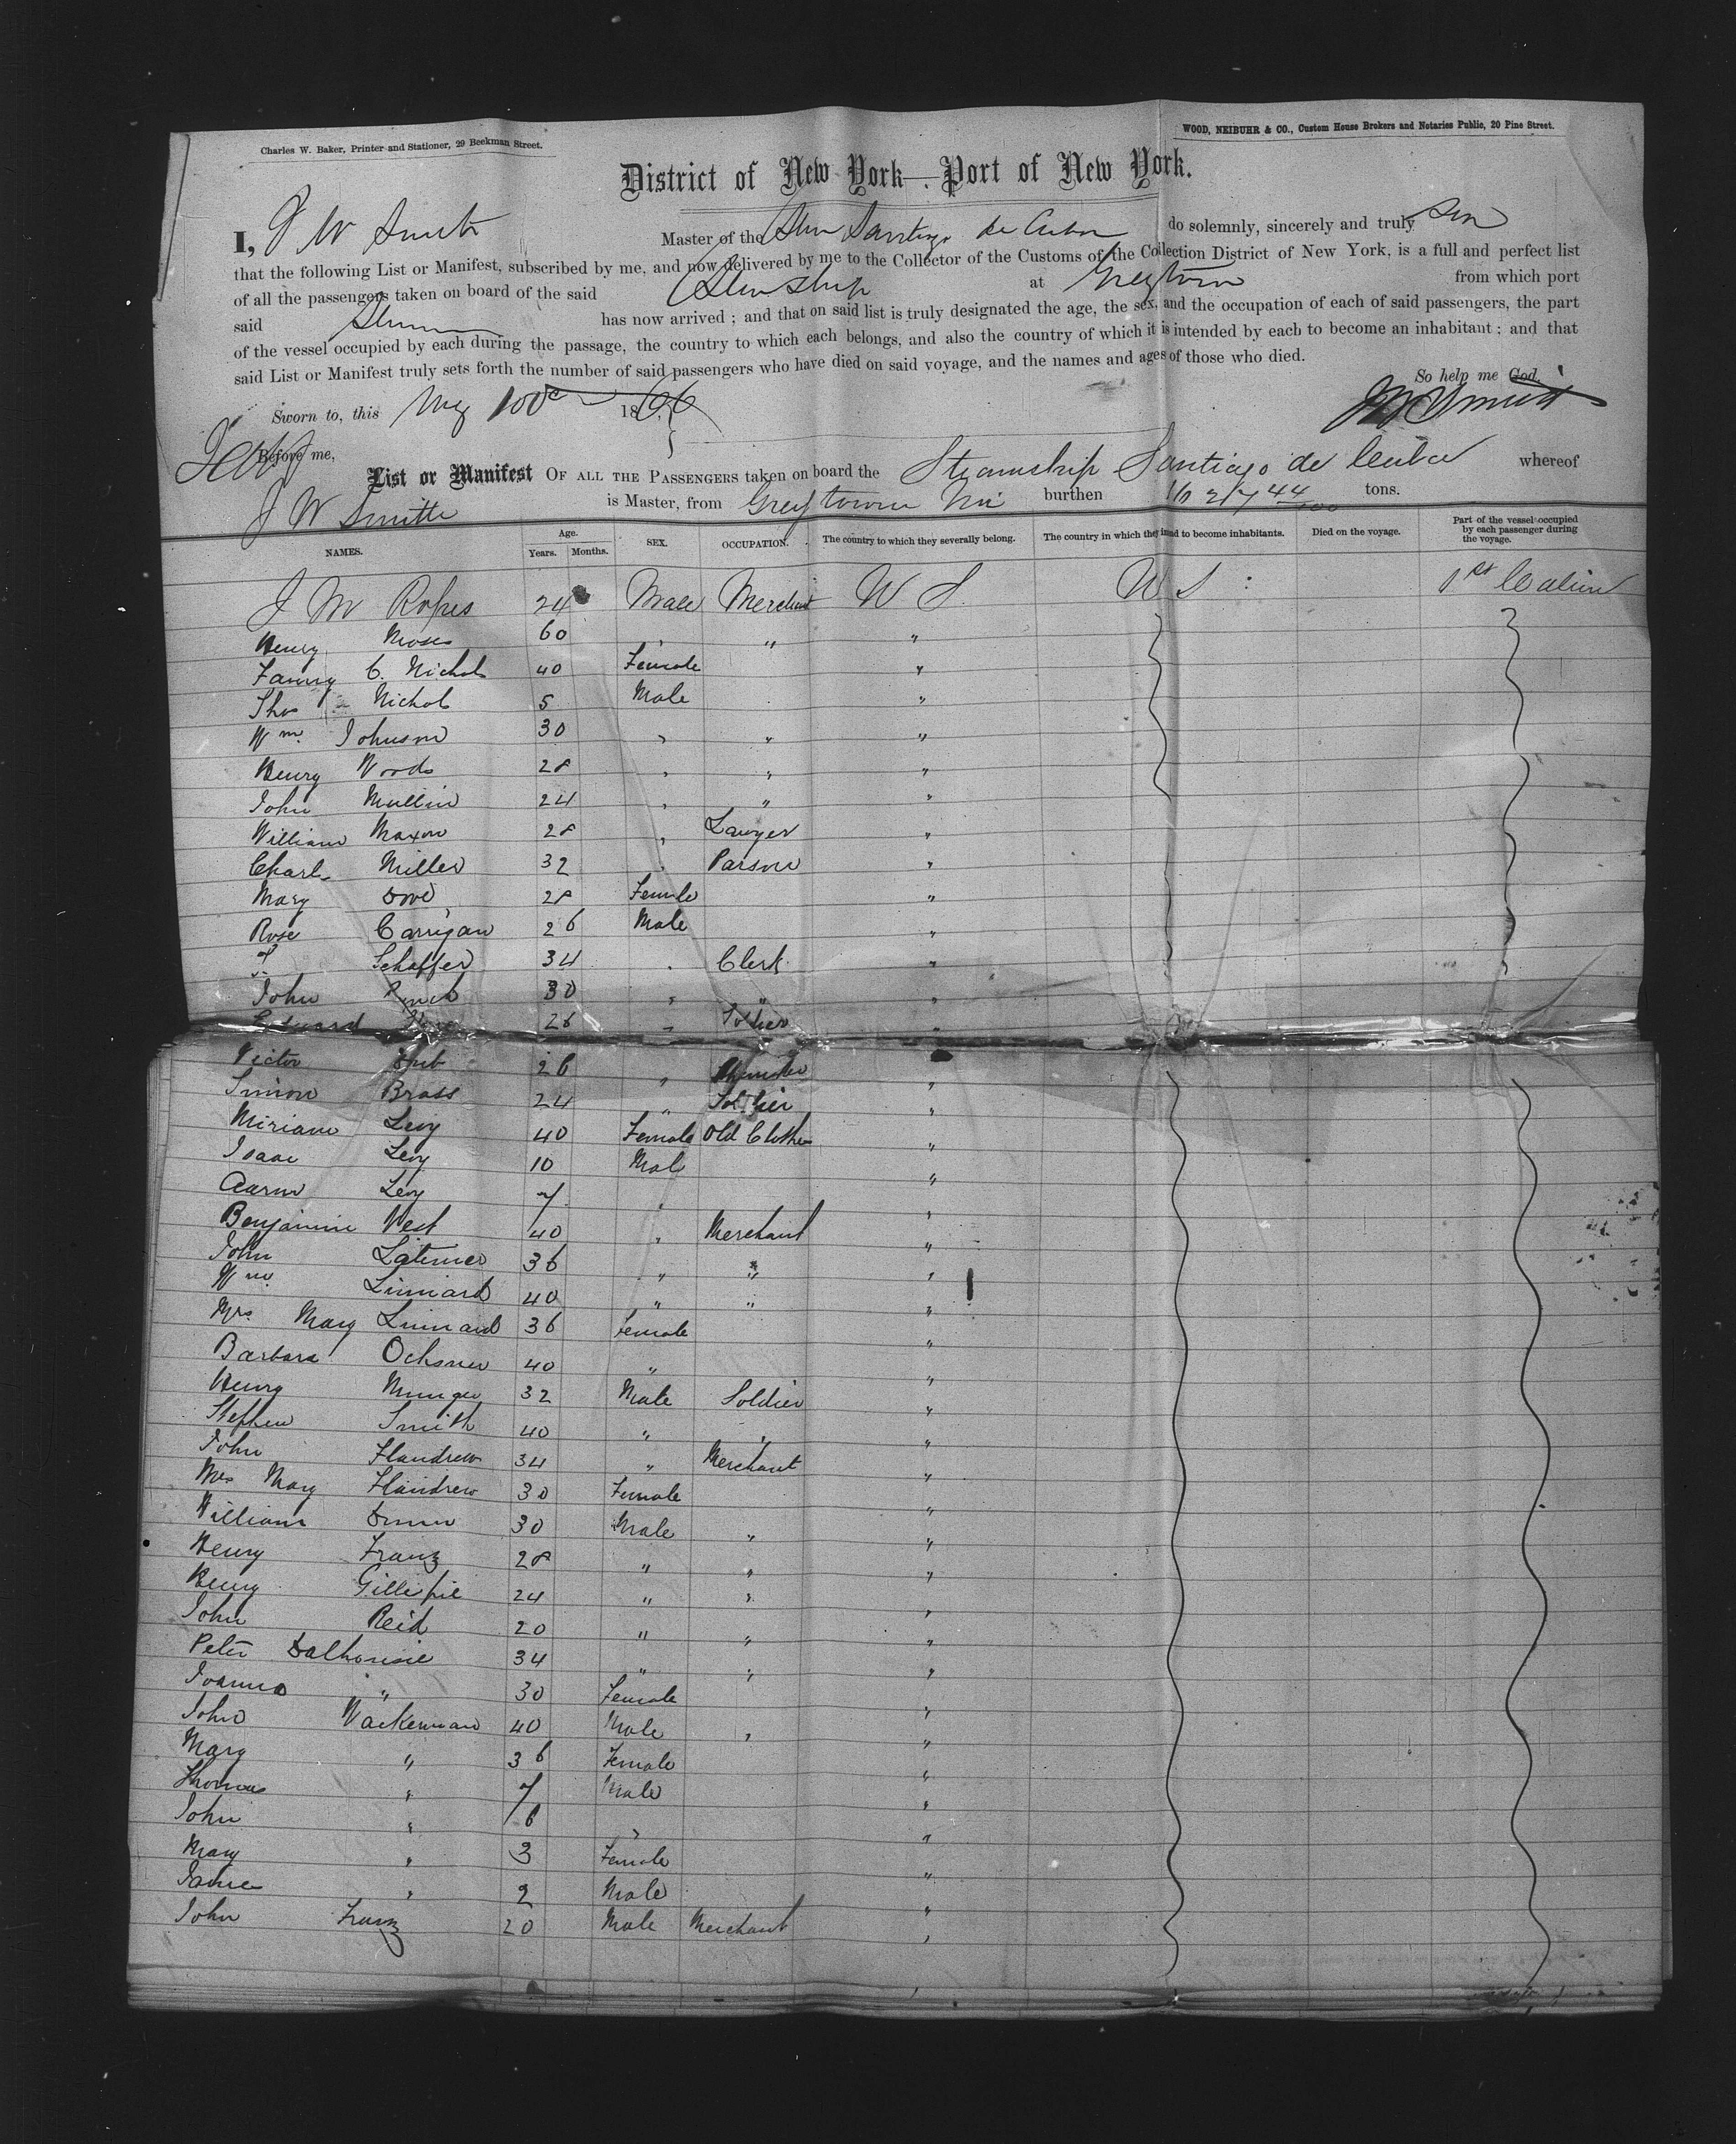 Charles W. Baker, Printer and Stationer, 29 Beekman Street.
WOOD, NEIBUHR & CO., Custom House Brokers and Notaries Public, 20 Pine Street.
District of New York—Port of New York.
I, J W Smith Master of the Santiago de Cuba do solemnly, sincerely and truly
that the following List or Manifest, subscribed by me, and now delivered by me to the Collector of the Customs of the Collection District of New York, is a full and perfect list
of all the passengers taken on board of the said Steamship at Greytown from which port
said has now arrived ; and that on said list is truly designated the age, the sex, and the occupation of each of said passengers, the part
of the vessel occupied by each during the passage, the country to which each belongs, and also the country of which it is intended by each to become an inhabitant ; and that
said List or Manifest truly sets forth the number of said passengers who have died on said voyage, and the names and ages of those who died.
So help me God.
Sworn to, this May 1866 J W Smith
Before me,
List or Manifest OF ALL THE PASSENGERS taken on board the Steamship Santiago de Cuba whereof
J W Smith is Master, from Greytown Ni burthen tons.
NAMES. Age. Years. Months. SEX. OCCUPATION. The country to which they severally belong. The country in which they intend to become inhabitants. Died on the voyage. Part of the vessel occupied by each passenger during the voyage.
J M Ropes 24 Male Merchant U S U S 1st Cabin
Henry Moses 60 " " "
Fanny C. Nichols 40 Female "
Thos Nichols 5 Male "
Wm. Johnson 30 " " "
Henry Woods 28 " " "
John Mullin 24 " " "
William Maxon 28 " Lawyer "
Charls Miller 32 " Parson "
Mary 28 Female "
Rose Carrigan 26 Male "
Schaffer 34 " Clerk "
John 30 " " "
Edward 26 " "
Victor 26 " "
Simon Brass 24 " Soldier "
Miriam Levy 40 Female Old Clothes "
Isaac Levy 10 Male "
Aaron Levy 7 " "
Benjamin West 40 " Merchant "
John Latimer 36 " " "
Wm. Linnard 40 " " "
Mrs. Mary Linnard 36 Female "
Barbara Ochsner 40 " "
Henry Munger 32 Male Soldier "
Stephen Smith 40 " " "
John Flandrew 34 " Merchant "
Mrs Mary Flandrew 30 Female "
William 30 Male " "
Henry Franz 28 " " "
Henry Gillespie 24 " " "
John Reid 20 " " "
Peter Dalhousie 34 " " "
Joanna " 30 Female "
John Wackerman 40 Male " "
Mary " 36 Female "
Thomas " 7 Male "
John " 6 " "
Mary " 3 Female "
Jame " 2 Male "
John Franz 20 Male Merchant "